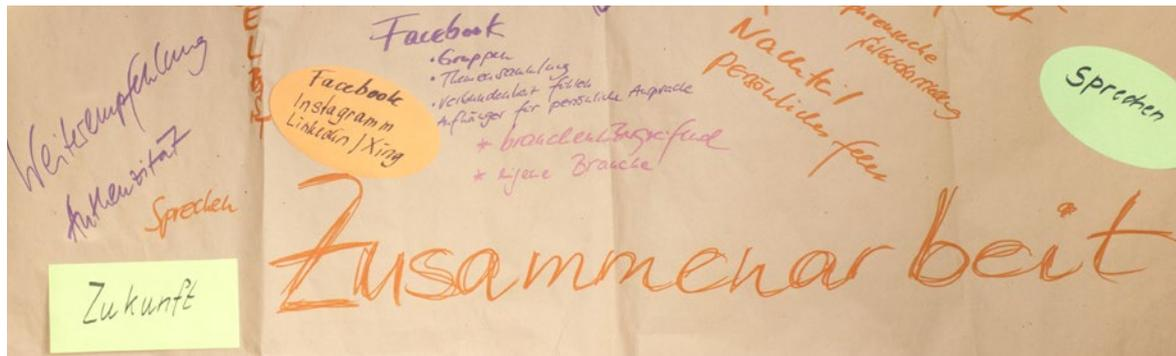 Weiterempfehlung
Authentizität
Sprechen
Zukunft
ELBST
Facebook
Instagramm
Linkedin / Xing
Facebook
• Gruppen
• Themensammlung
• Verbundenheit fühlen
Aufhänger für persönliche Ansprache
* branchenübergreifend
* eigene Branche
Nachteil
persönliches
Sprechen
Zusammenarbeit